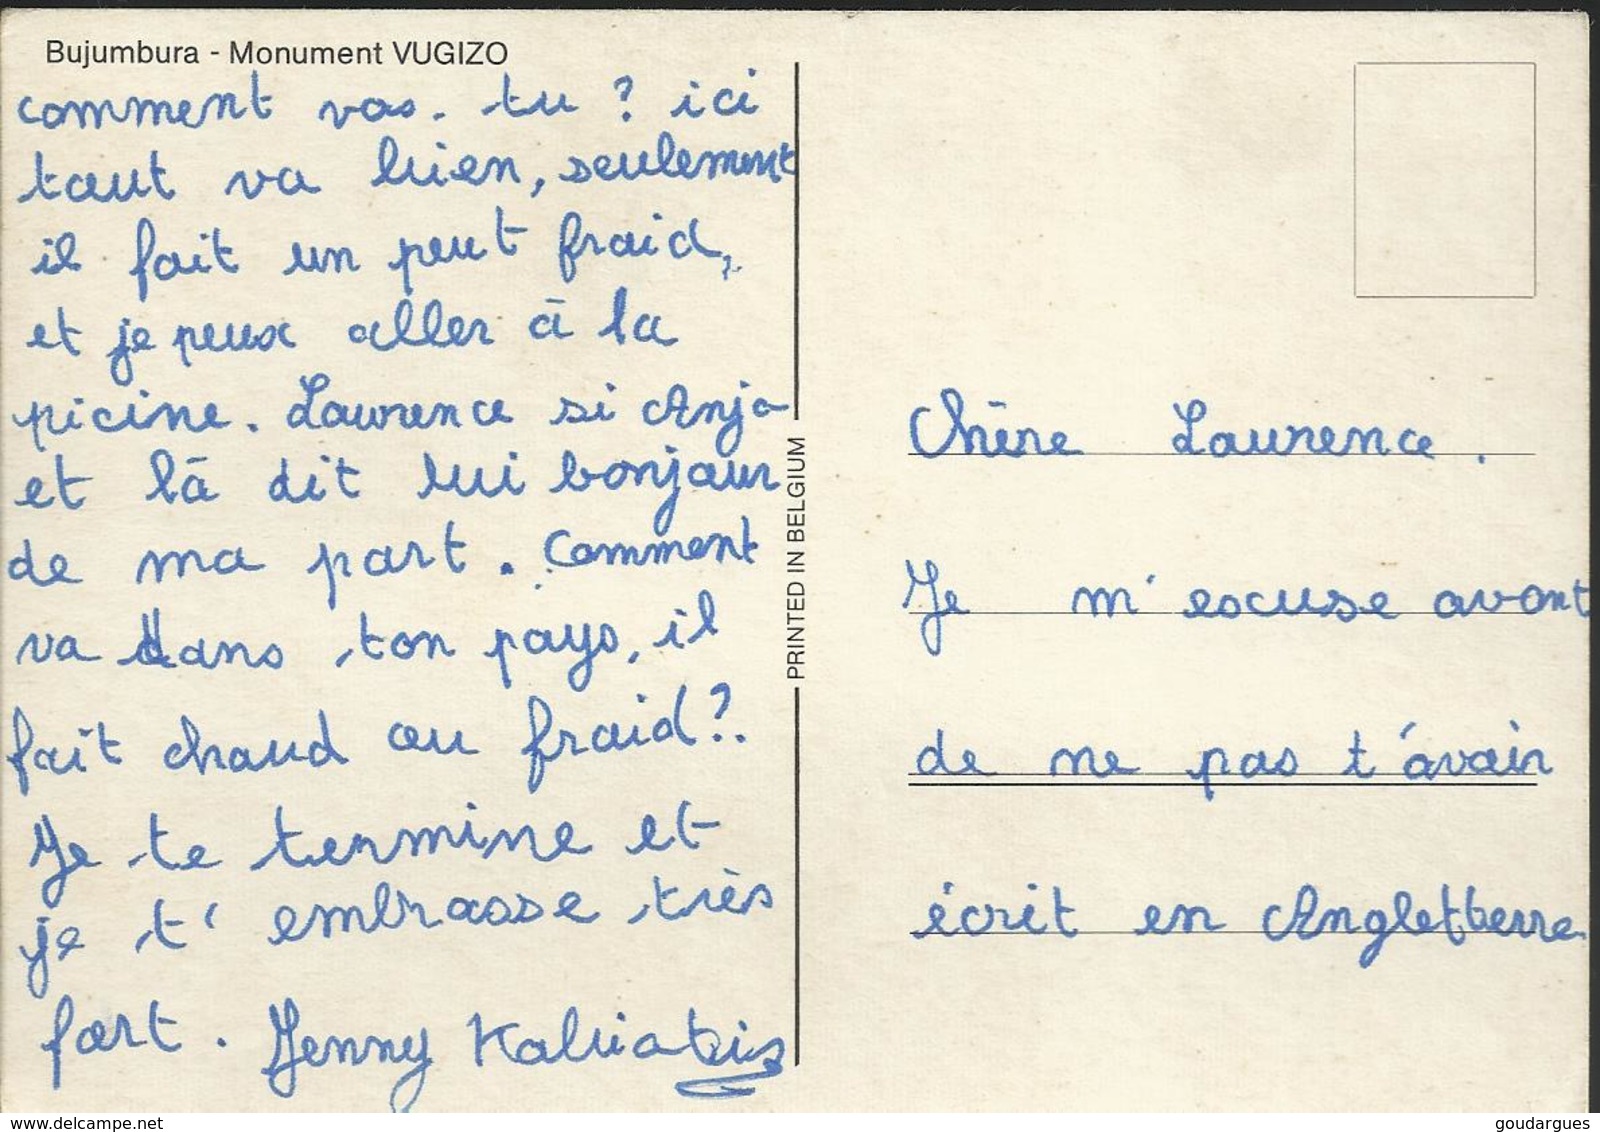 Bujumbura - Monument VUGIZO
Chère Laurence.
Je m'escuse avont
de ne pas t'avoir
écrit en Angletterre.
comment vas-tu ? ici
tout va bien, seulement
il fait un peut froid,
et je peux aller à la
picine. Laurence si Anja
et là dit lui bonjour
de ma part. Comment
va dans ton pays, il
fait chaud ou froid ?.
Je te termine et
je t'embrasse très
fort. Jenny
PRINTED IN BELGIUM
www.delcampe.net
goudargues